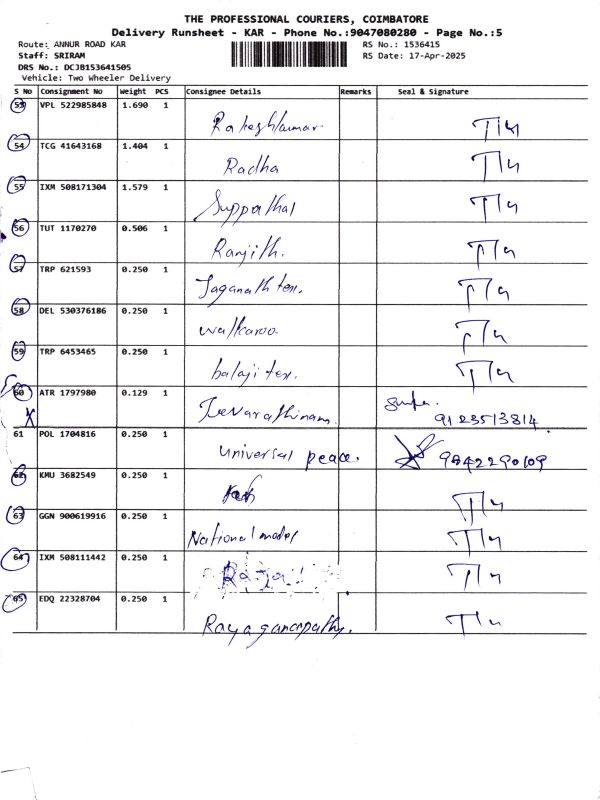 THE PROFESSIONAL COURIERS, COIMBATORE
Delivery Runsheet - KAR - Phone No.:9047080280 - Page No.:5
Route: ANNUR ROAD KAR RS No.: 1536415
Staff: SRIRAM RS Date: 17-Apr-2025
DRS No.: DCJB153641505
Vehicle: Two Wheeler Delivery
S No Consignment No Weight PCS Consignee Details Remarks Seal & Signature
53 VPL 522985848 1.690 1
Rakeshkumar
54 TCG 41643168 1.404 1
Radha
55 IXM 508171304 1.579 1
Suppathal
56 TUT 1170270 0.506 1
Ranjith.
57 TRP 621593 0.250 1
Jaganath tex.
58 DEL 530376186 0.250 1
walkaroo
59 TRP 6453465 0.250 1
balaji tex.
60 ATR 1797980 0.129 1
Devarathinam. 9123513814
61 POL 1704816 0.250 1
universal peace. 9842290109
62 KMU 3682549 0.250 1
63 GGN 900619916 0.250 1
National model
64 IXM 508111442 0.250 1
65 EDQ 22328704 0.250 1
Rayaganapathy.